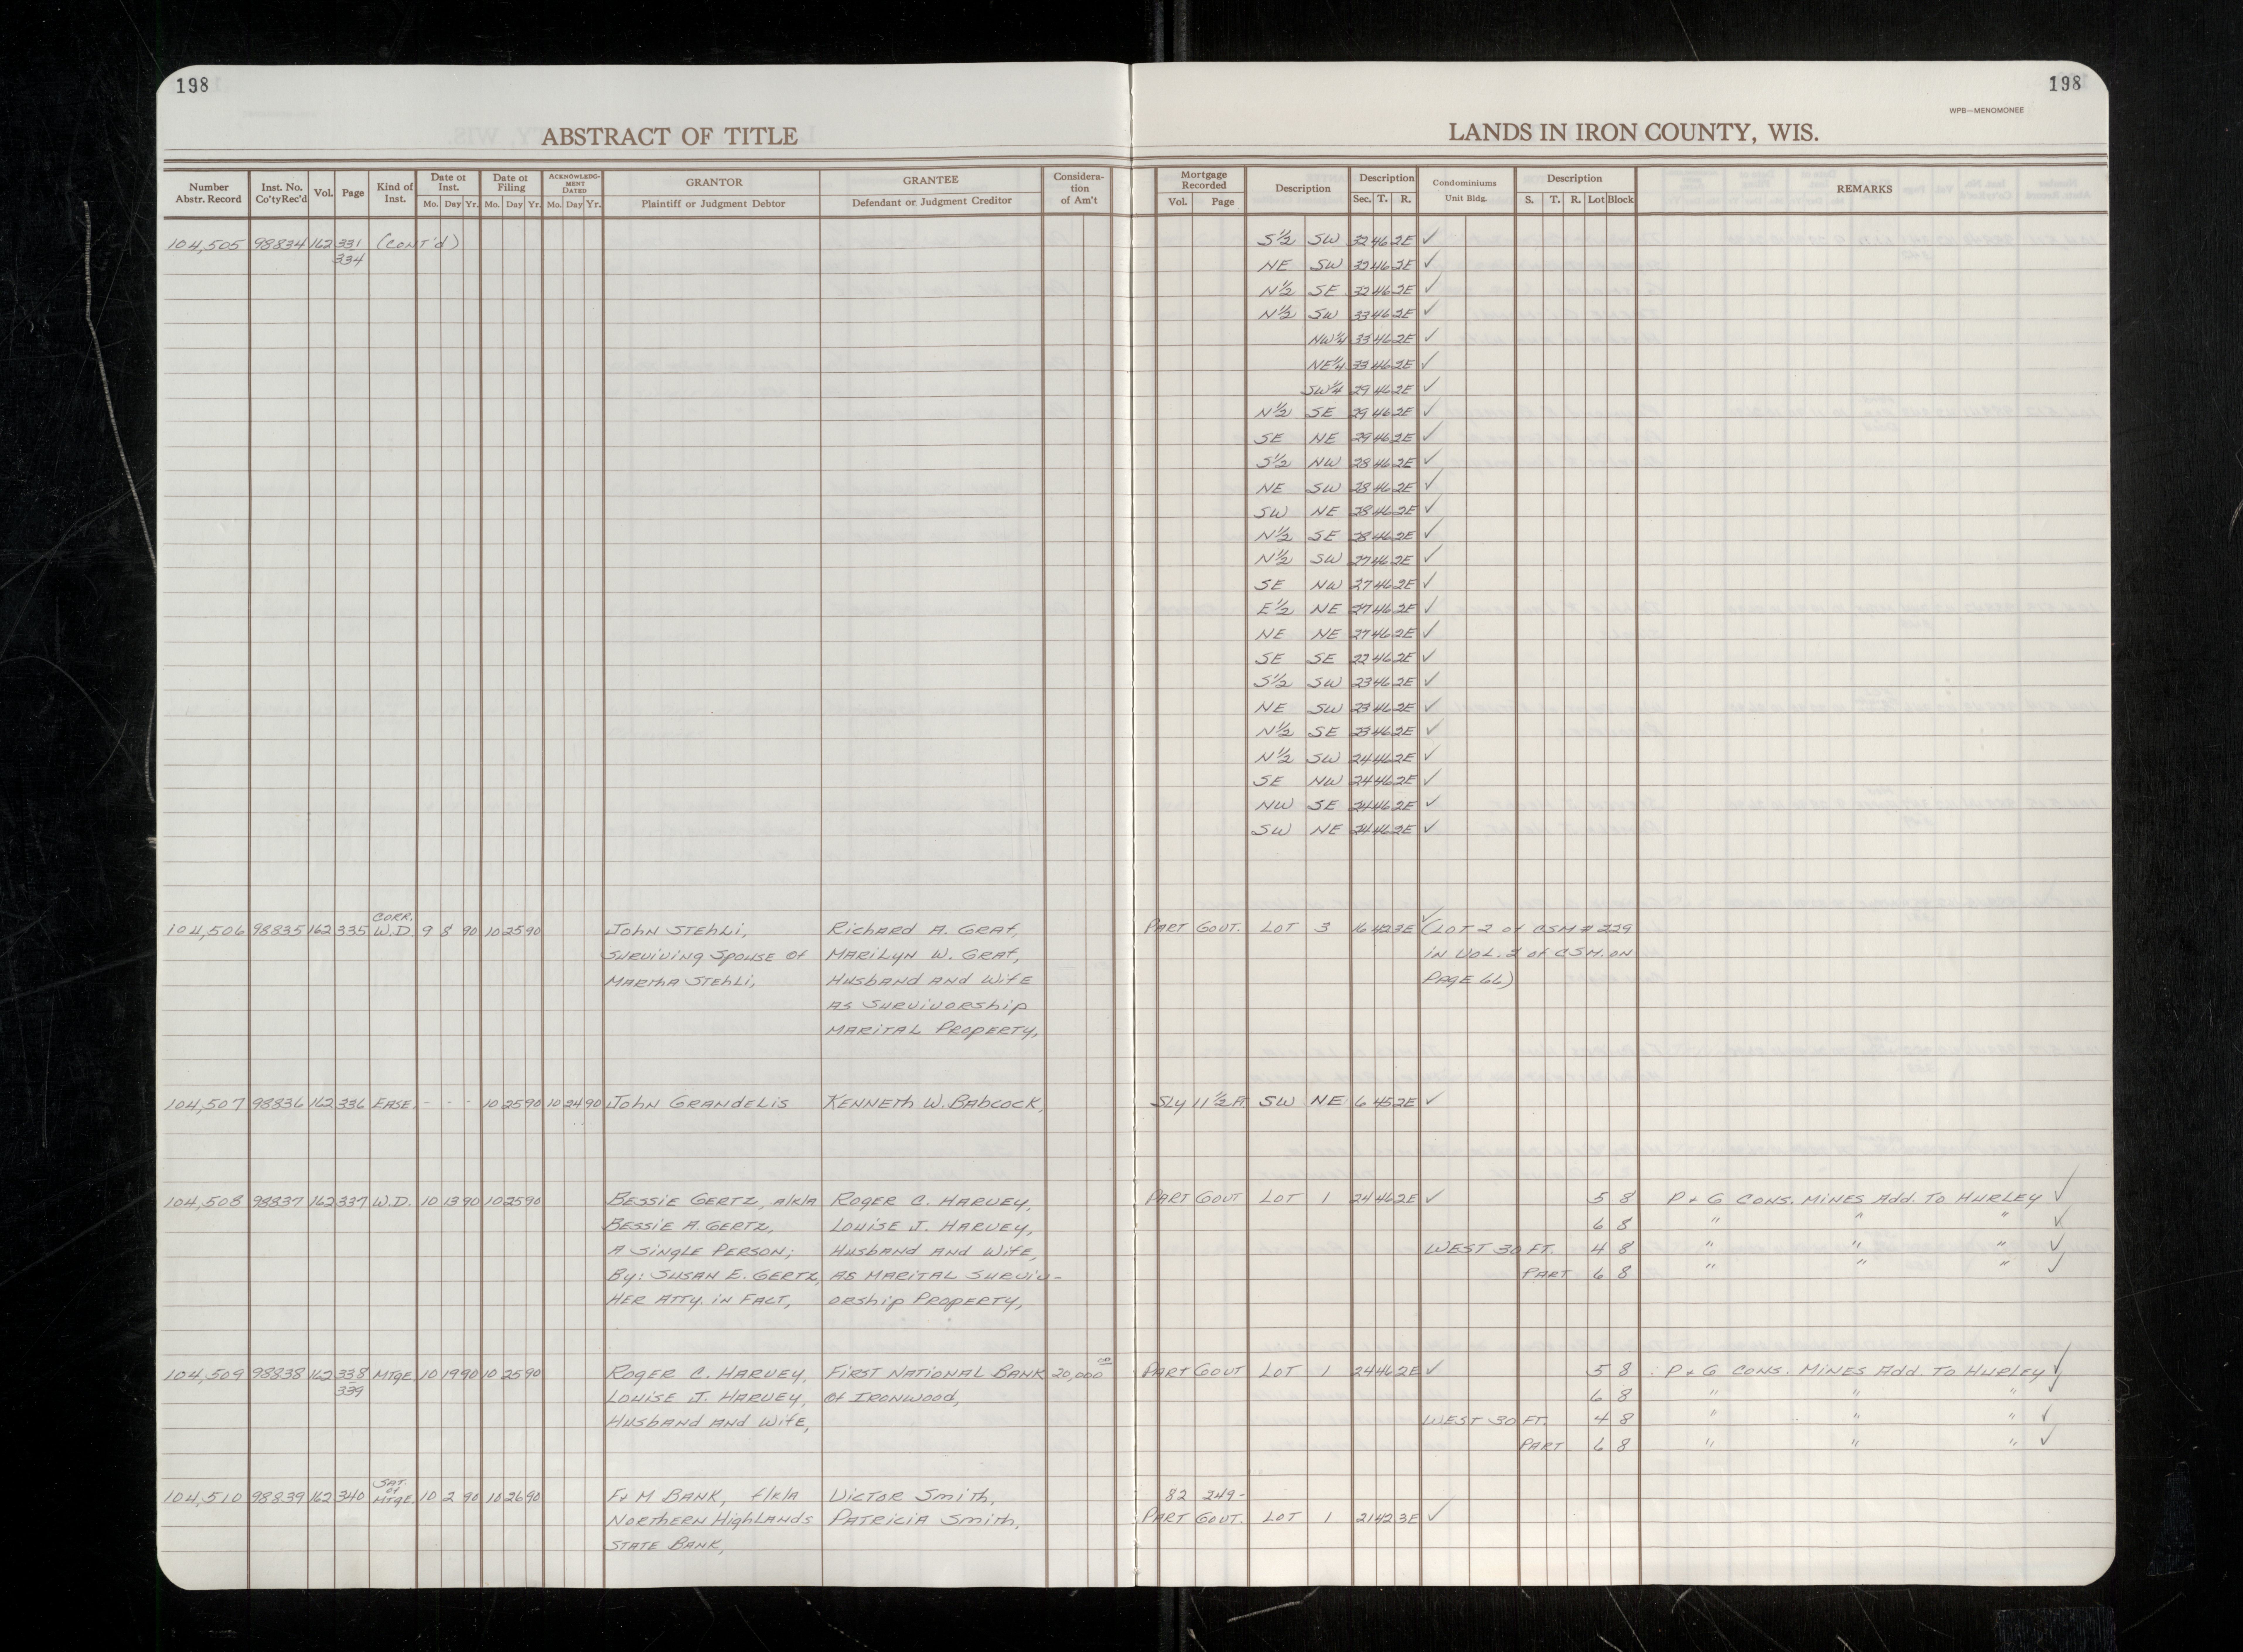 198
198
WPB—MENOMONEE
ABSTRACT OF TITLE
LANDS IN IRON COUNTY, WIS.
Number Abstr. Record | Inst. No. Co'ty Rec'd | Vol. | Page | Kind of Inst. | Date of Inst. Mo. Day Yr. | Date of Filing Mo. Day Yr. | ACKNOWLEDG-MENT DATED Mo. Day Yr. | GRANTOR Plaintiff or Judgment Debtor | GRANTEE Defendant or Judgment Creditor | Considera-tion of Am't | Mortgage Recorded Vol. Page | Description | Description Sec. T. R. | Condominiums Unit Bldg. | Description S. T. R. Lot Block | REMARKS
104,505 98834 162 331 (CONT'd) S½ SW 32 46 2E ✓
334 NE SW 32 46 2E ✓
N½ SE 32 46 2E ✓
N½ SW 33 46 2E ✓
NW¼ 33 46 2E ✓
NE¼ 33 46 2E ✓
SW¼ 29 46 2E ✓
N½ SE 29 46 2E ✓
SE NE 29 46 2E ✓
S½ NW 28 46 2E ✓
NE SW 28 46 2E ✓
SW NE 28 46 2E ✓
N½ SE 28 46 2E ✓
N½ SW 27 46 2E ✓
SE NW 27 46 2E ✓
E½ NE 27 46 2E ✓
NE NE 27 46 2E ✓
SE SE 22 46 2E ✓
S½ SW 23 46 2E ✓
NE SW 23 46 2E ✓
N½ SE 23 46 2E ✓
N½ SW 24 46 2E ✓
SE NW 24 46 2E ✓
NW SE 24 46 2E ✓
SW NE 24 46 2E ✓
CORR.
104,506 98835 162 335 W.D. 9 8 90 10 25 90 John Stehli, Richard A. Graf, PART GOVT. LOT 3 16 42 3E ✓ (LOT 2 of CSM # 229
Surviving Spouse of Marilyn W. Graf, in VOL. 2 of CSM. on
Martha Stehli, Husband and Wife PAGE 66)
as Survivorship
Marital Property,
104,507 98836 162 336 EASE. - - - 10 25 90 10 24 90 John Grandelis Kenneth W. Babcock, SLY 11½ A SW NE 6 45 2E ✓
104,508 98837 162 337 W.D. 10 13 90 10 25 90 Bessie Gertz, a/k/a Roger C. Harvey, PART GOVT LOT 1 24 46 2E ✓ 5 8 P & G Cons. Mines Add. To Hurley ✓
Bessie A. Gertz, Louise J. Harvey, 6 8 " " " ✓
A Single Person; Husband and Wife, WEST 30 FT. 4 8 " " " ✓
By: Susan E. Gertz, as Marital Surviv- PART 6 8 " " " ✓
Her Atty. in Fact, orship Property,
104,509 98838 162 338 MTGE 10 19 90 10 25 90 Roger C. Harvey, First National Bank 20,000 00 PART GOVT LOT 1 24 46 2E ✓ 5 8 P & G Cons. Mines Add. To Hurley ✓
339 Louise J. Harvey, of Ironwood, 6 8 " " " ✓
Husband and Wife, WEST 30 FT. 4 8 " " " ✓
PART 6 8 " " " ✓
SAT. of
104,510 98839 162 340 MTGE 10 2 90 10 26 90 F & M Bank, f/k/a Victor Smith, 82 249-
Northern Highlands Patricia Smith, PART GOVT. LOT 1 21 42 3E ✓
State Bank,